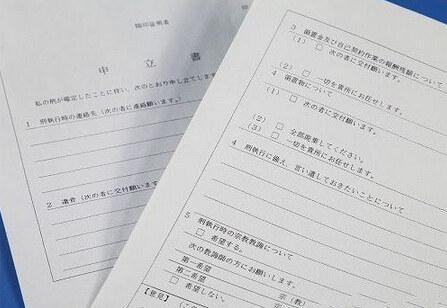 指印証明者
申立書
私の刑が確定したことに伴い、次のとおり申し立てします
1 刑執行時の連絡先(次の者に連絡願います。)
2 遺骨(次の者に交付願います
3 領置金及び自己契約作業の報酬残額について
(1) □ 次の者に交付願います。
(2) □ 一切を貴所にお任せします。
4 領置物について
(1) □ 次の者に交付願います。
(2) □ 全部廃棄してください。
(3) □ 一切を貴所にお任せします。
4 刑執行に備え、言い遺しておきたいことについて
5 刑執行時の宗教教誨について
□ 希望する。
次の教誨師の方にお願いします。
第一希望
第二希望 宗(教)
□ 希望しない。 宗
【意見】